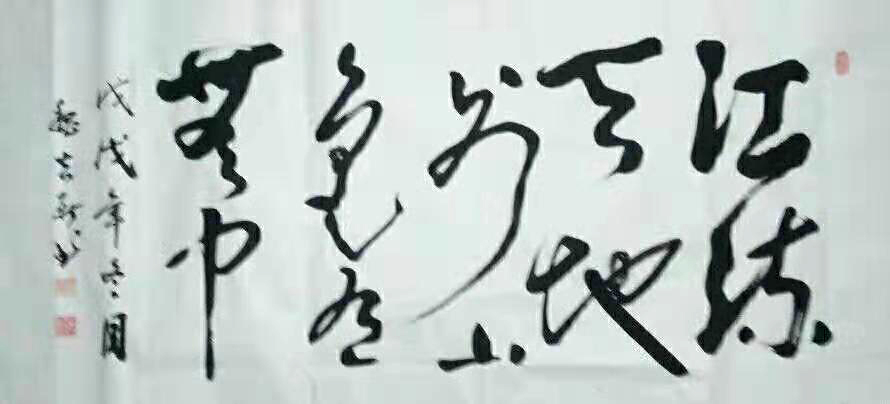 江流
天地
外山
色有
無中
戊戌年冬月
书